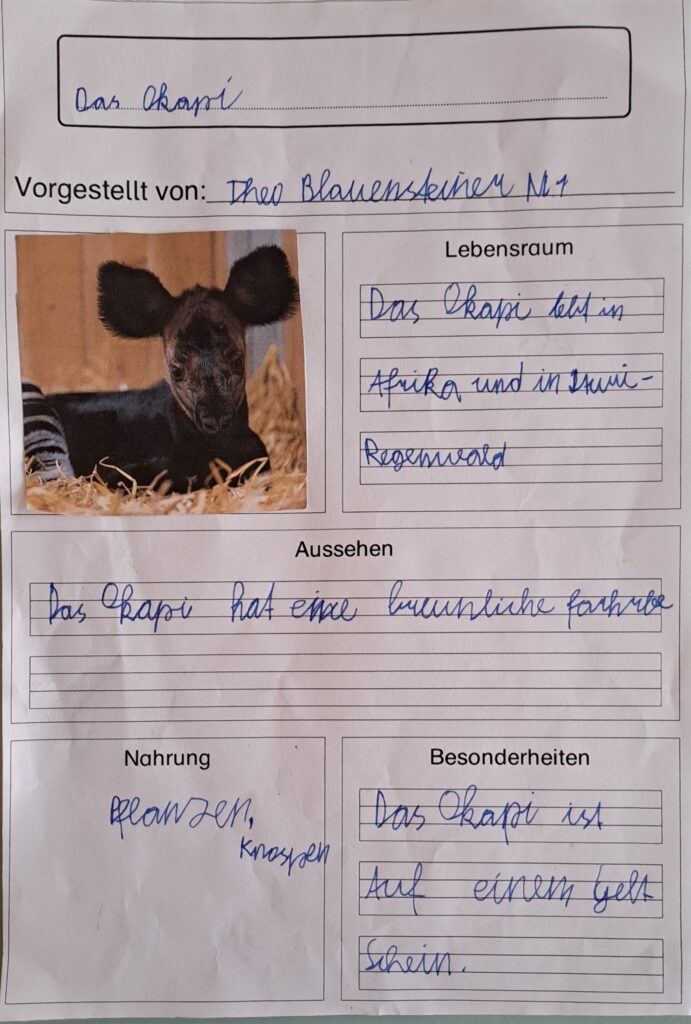 Das Okapi
Vorgestellt von: Theo Blauensteiner M1
Lebensraum
Das Okapi lebt in
Afrika und in Ituri-
Regenwald
Aussehen
Das Okapi hat eine breunliche
Nahrung
Pflanzen,
Knospen
Besonderheiten
Das Okapi ist
Auf einem Gelt
Schein.